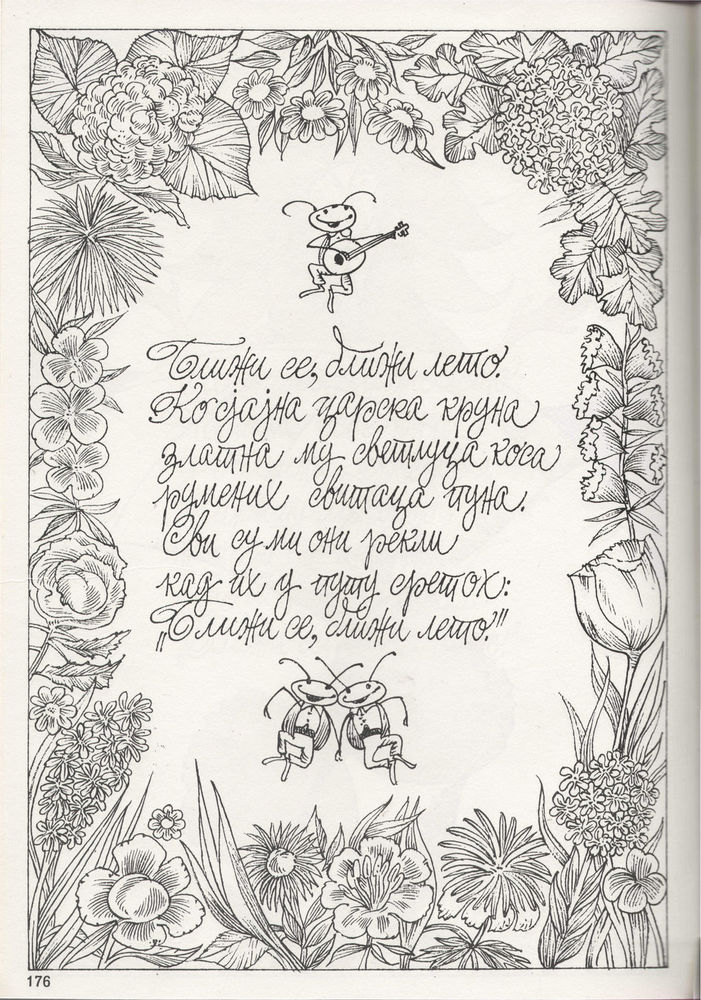 Ближи се, ближи лето.
Ко сјајна царска круна
златна му светлуца коса
румених свитаца пуна.
Сви су ми они рекли
кад их у путу сретох:
„Ближи се, ближи лето.”
176